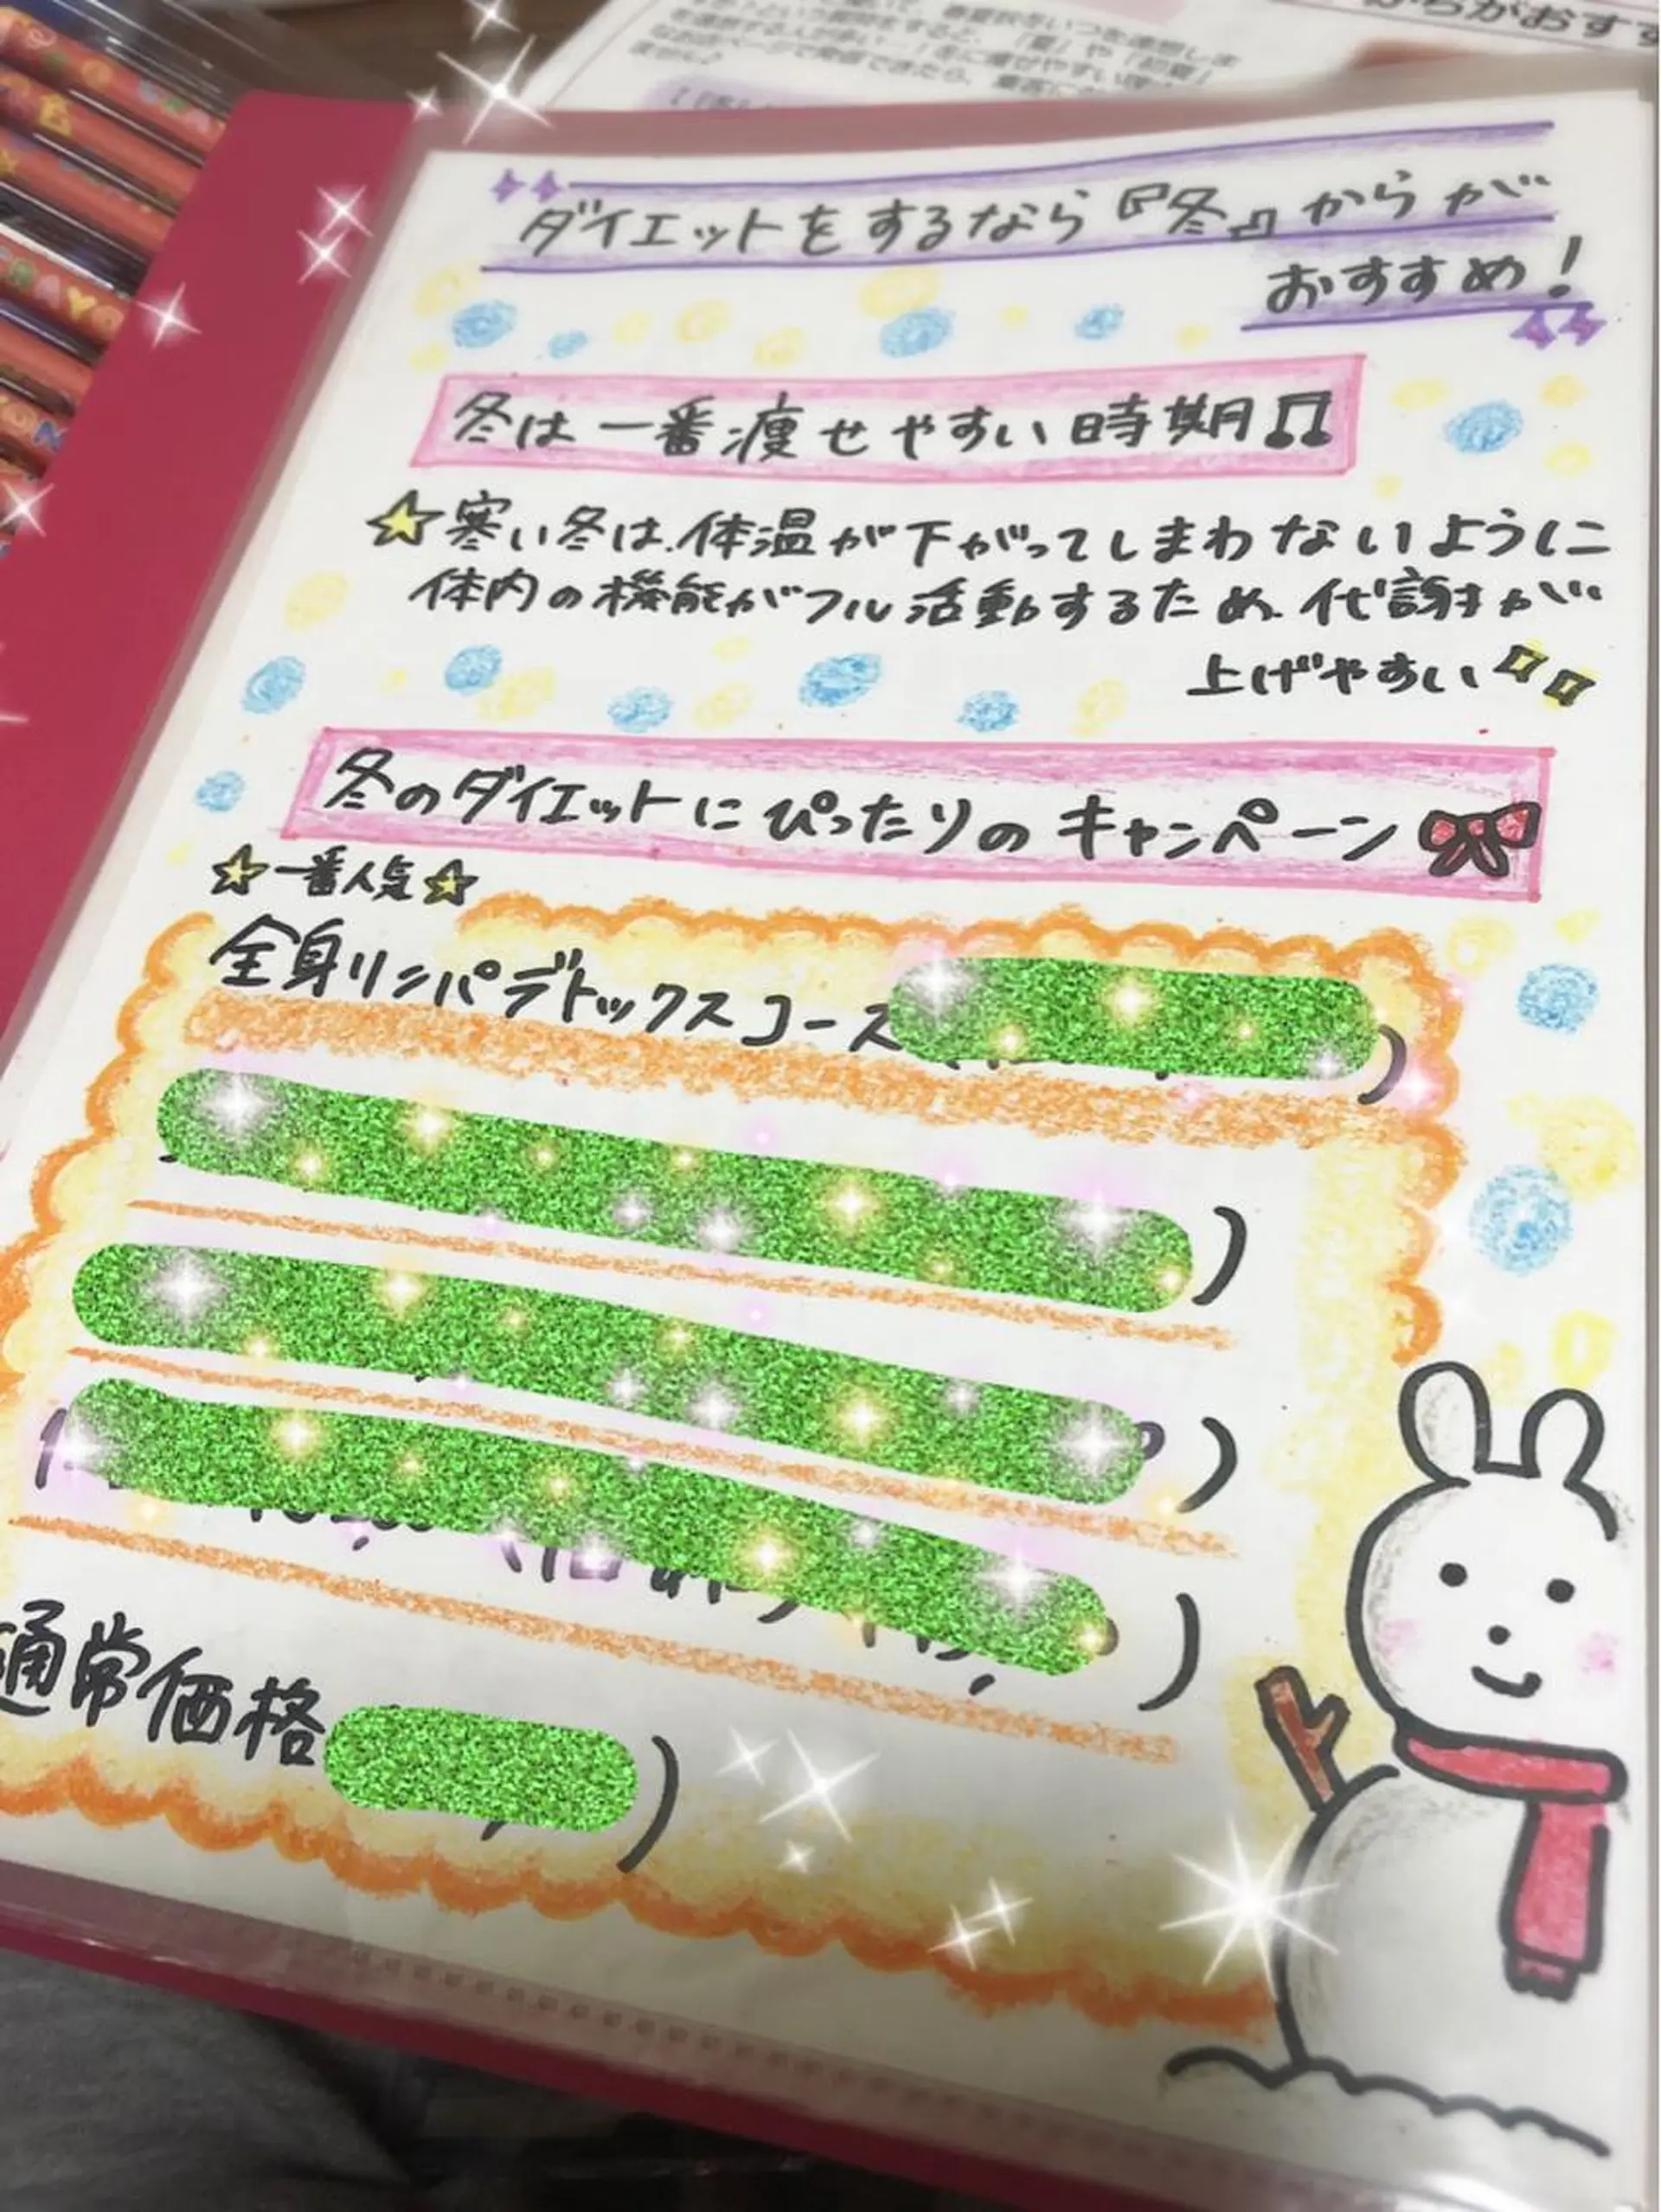 からがおすす
ダイエットをするなら『冬』からが
おすすめ!
冬は一番痩せやすい時期♫
☆寒い冬は、体温が下がってしまわないように
体内の機能がフル活動するため、代謝が
上げやすい
冬のダイエットにぴったりのキャンペーン
☆一番人気☆
全身リンパデトックスコース
)
)
)
)
通常価格
)